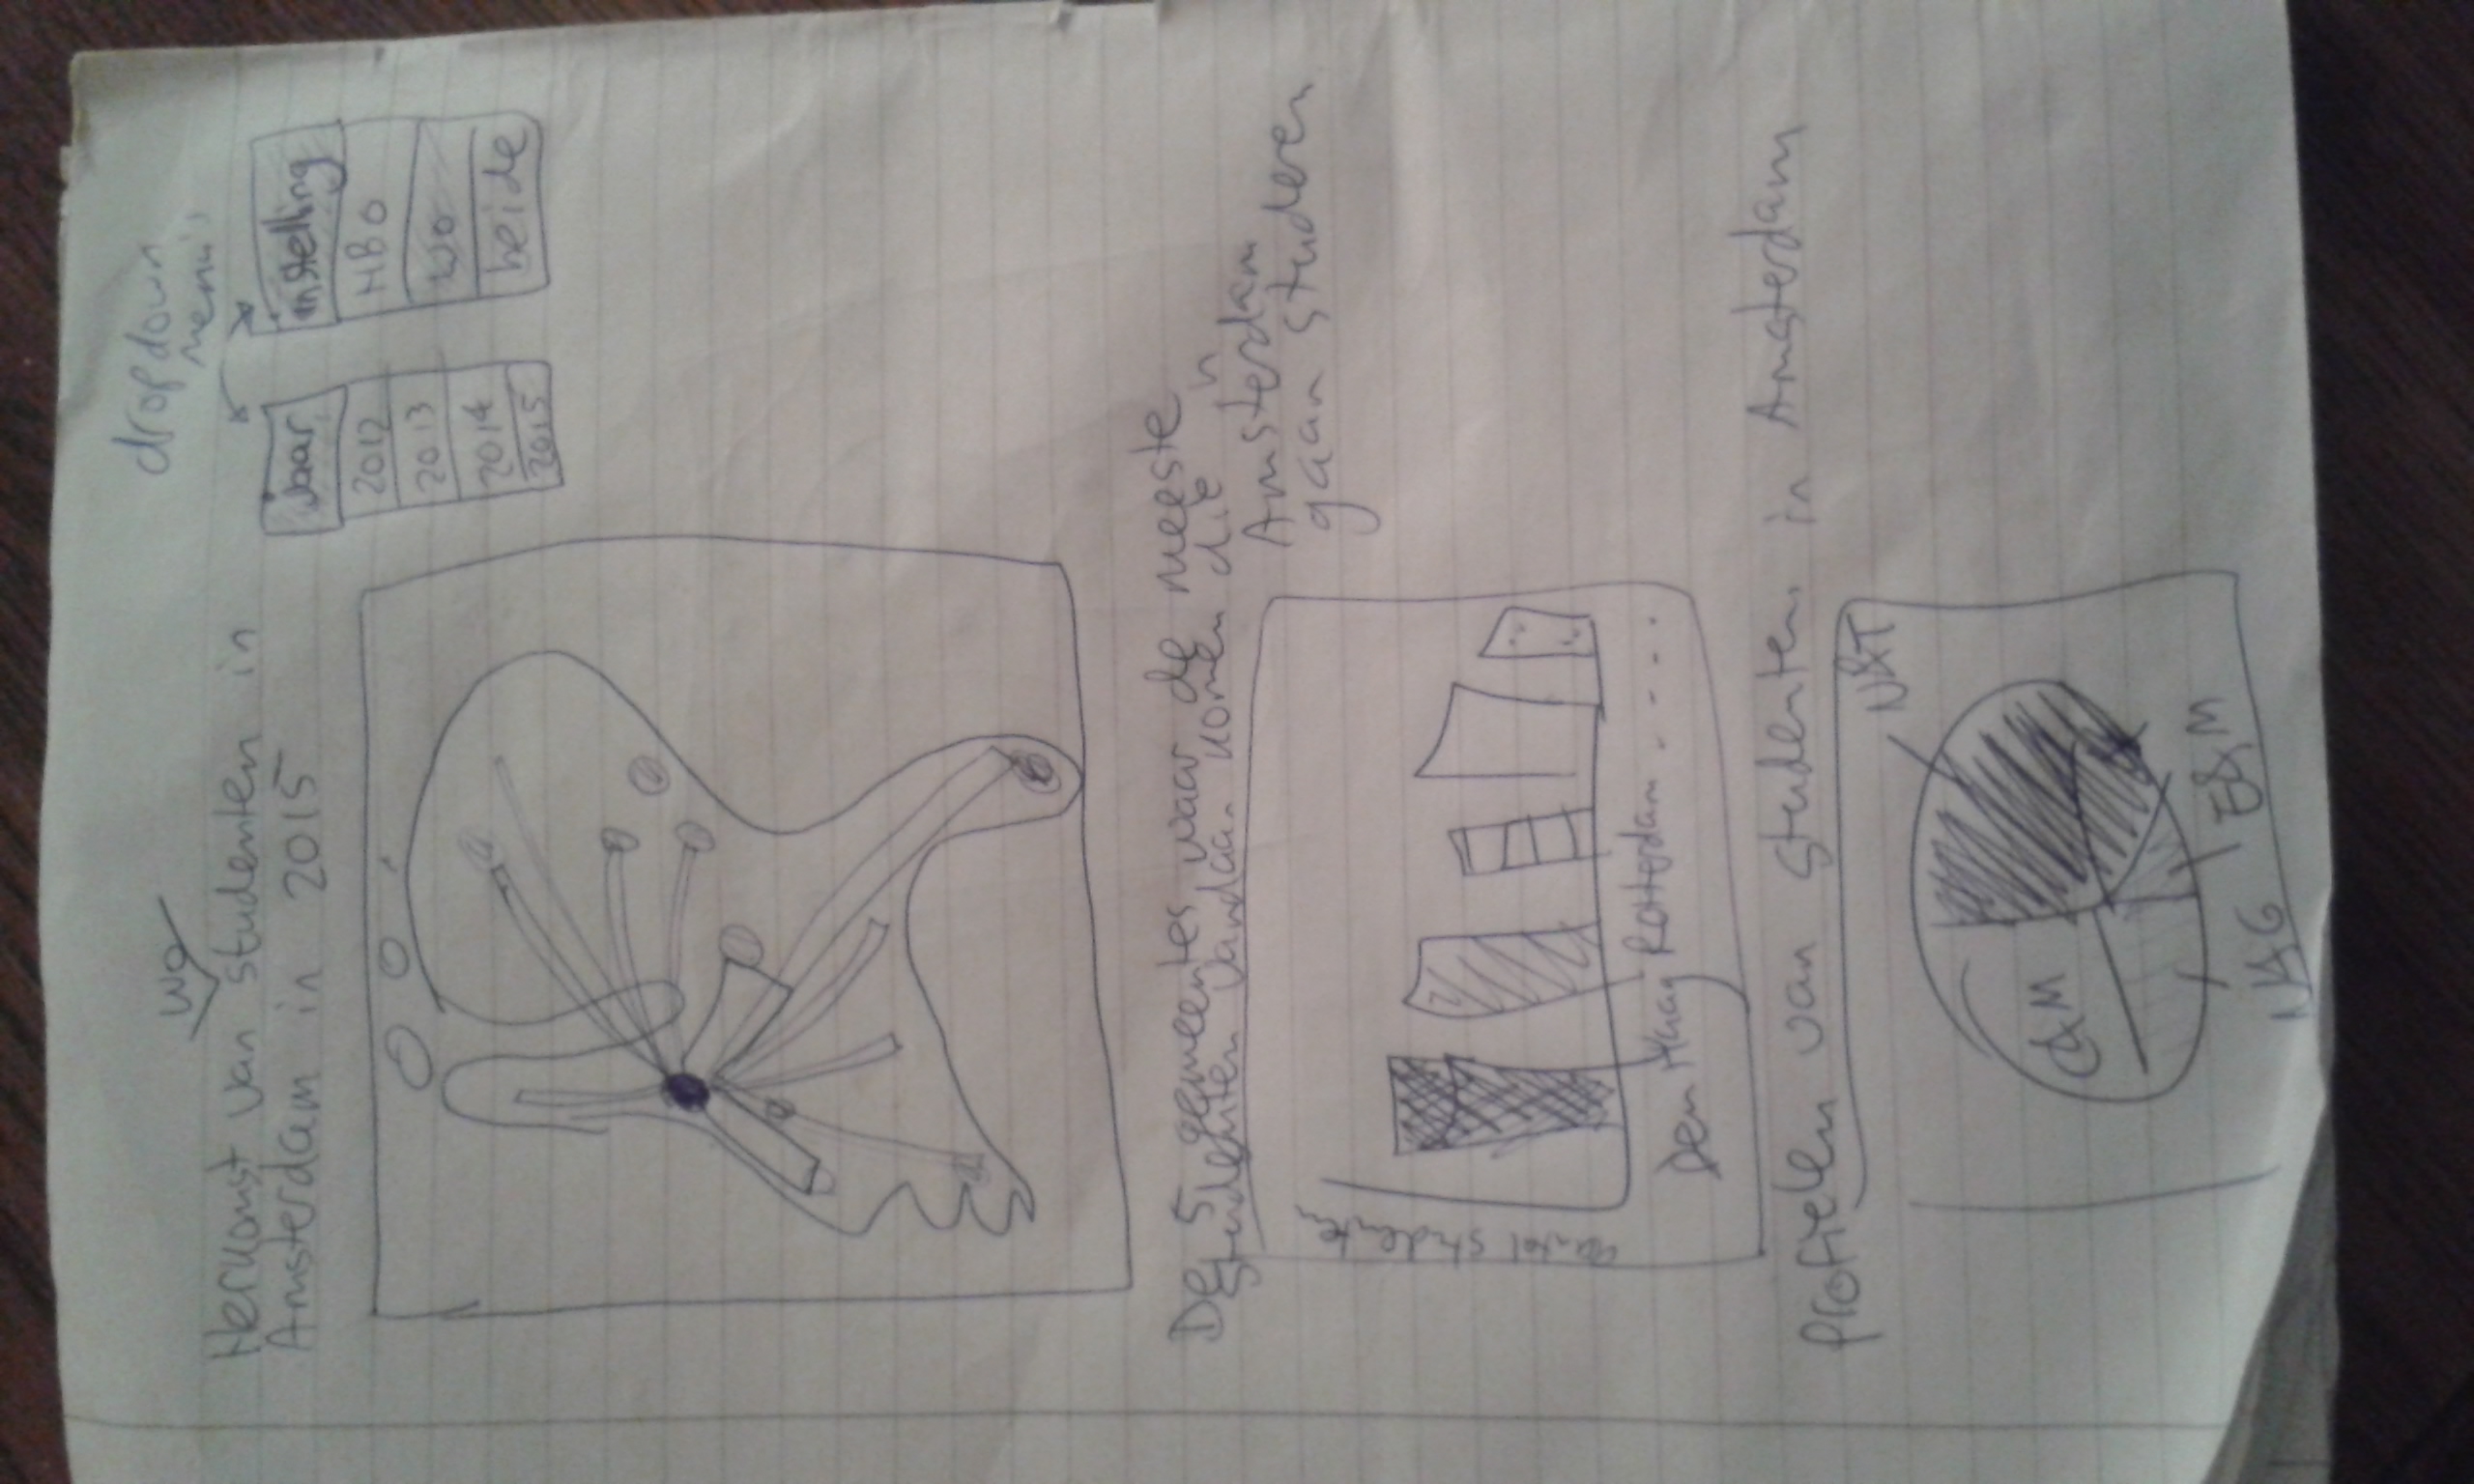 dropdown
menu's
wo
Herkomst van studenten in
Amsterdam in 2015
jaar
2012
2013
2014
2015
instelling
HBO
WO
beide
De 5 gemeentes waar de meeste
studenten vandaan komen die in
Amsterdam
gaan studeren
aantal studenten
Den Haag Rotterdam - - - - -
Profielen van studenten in Amsterdam
N&T
C&M
E&M